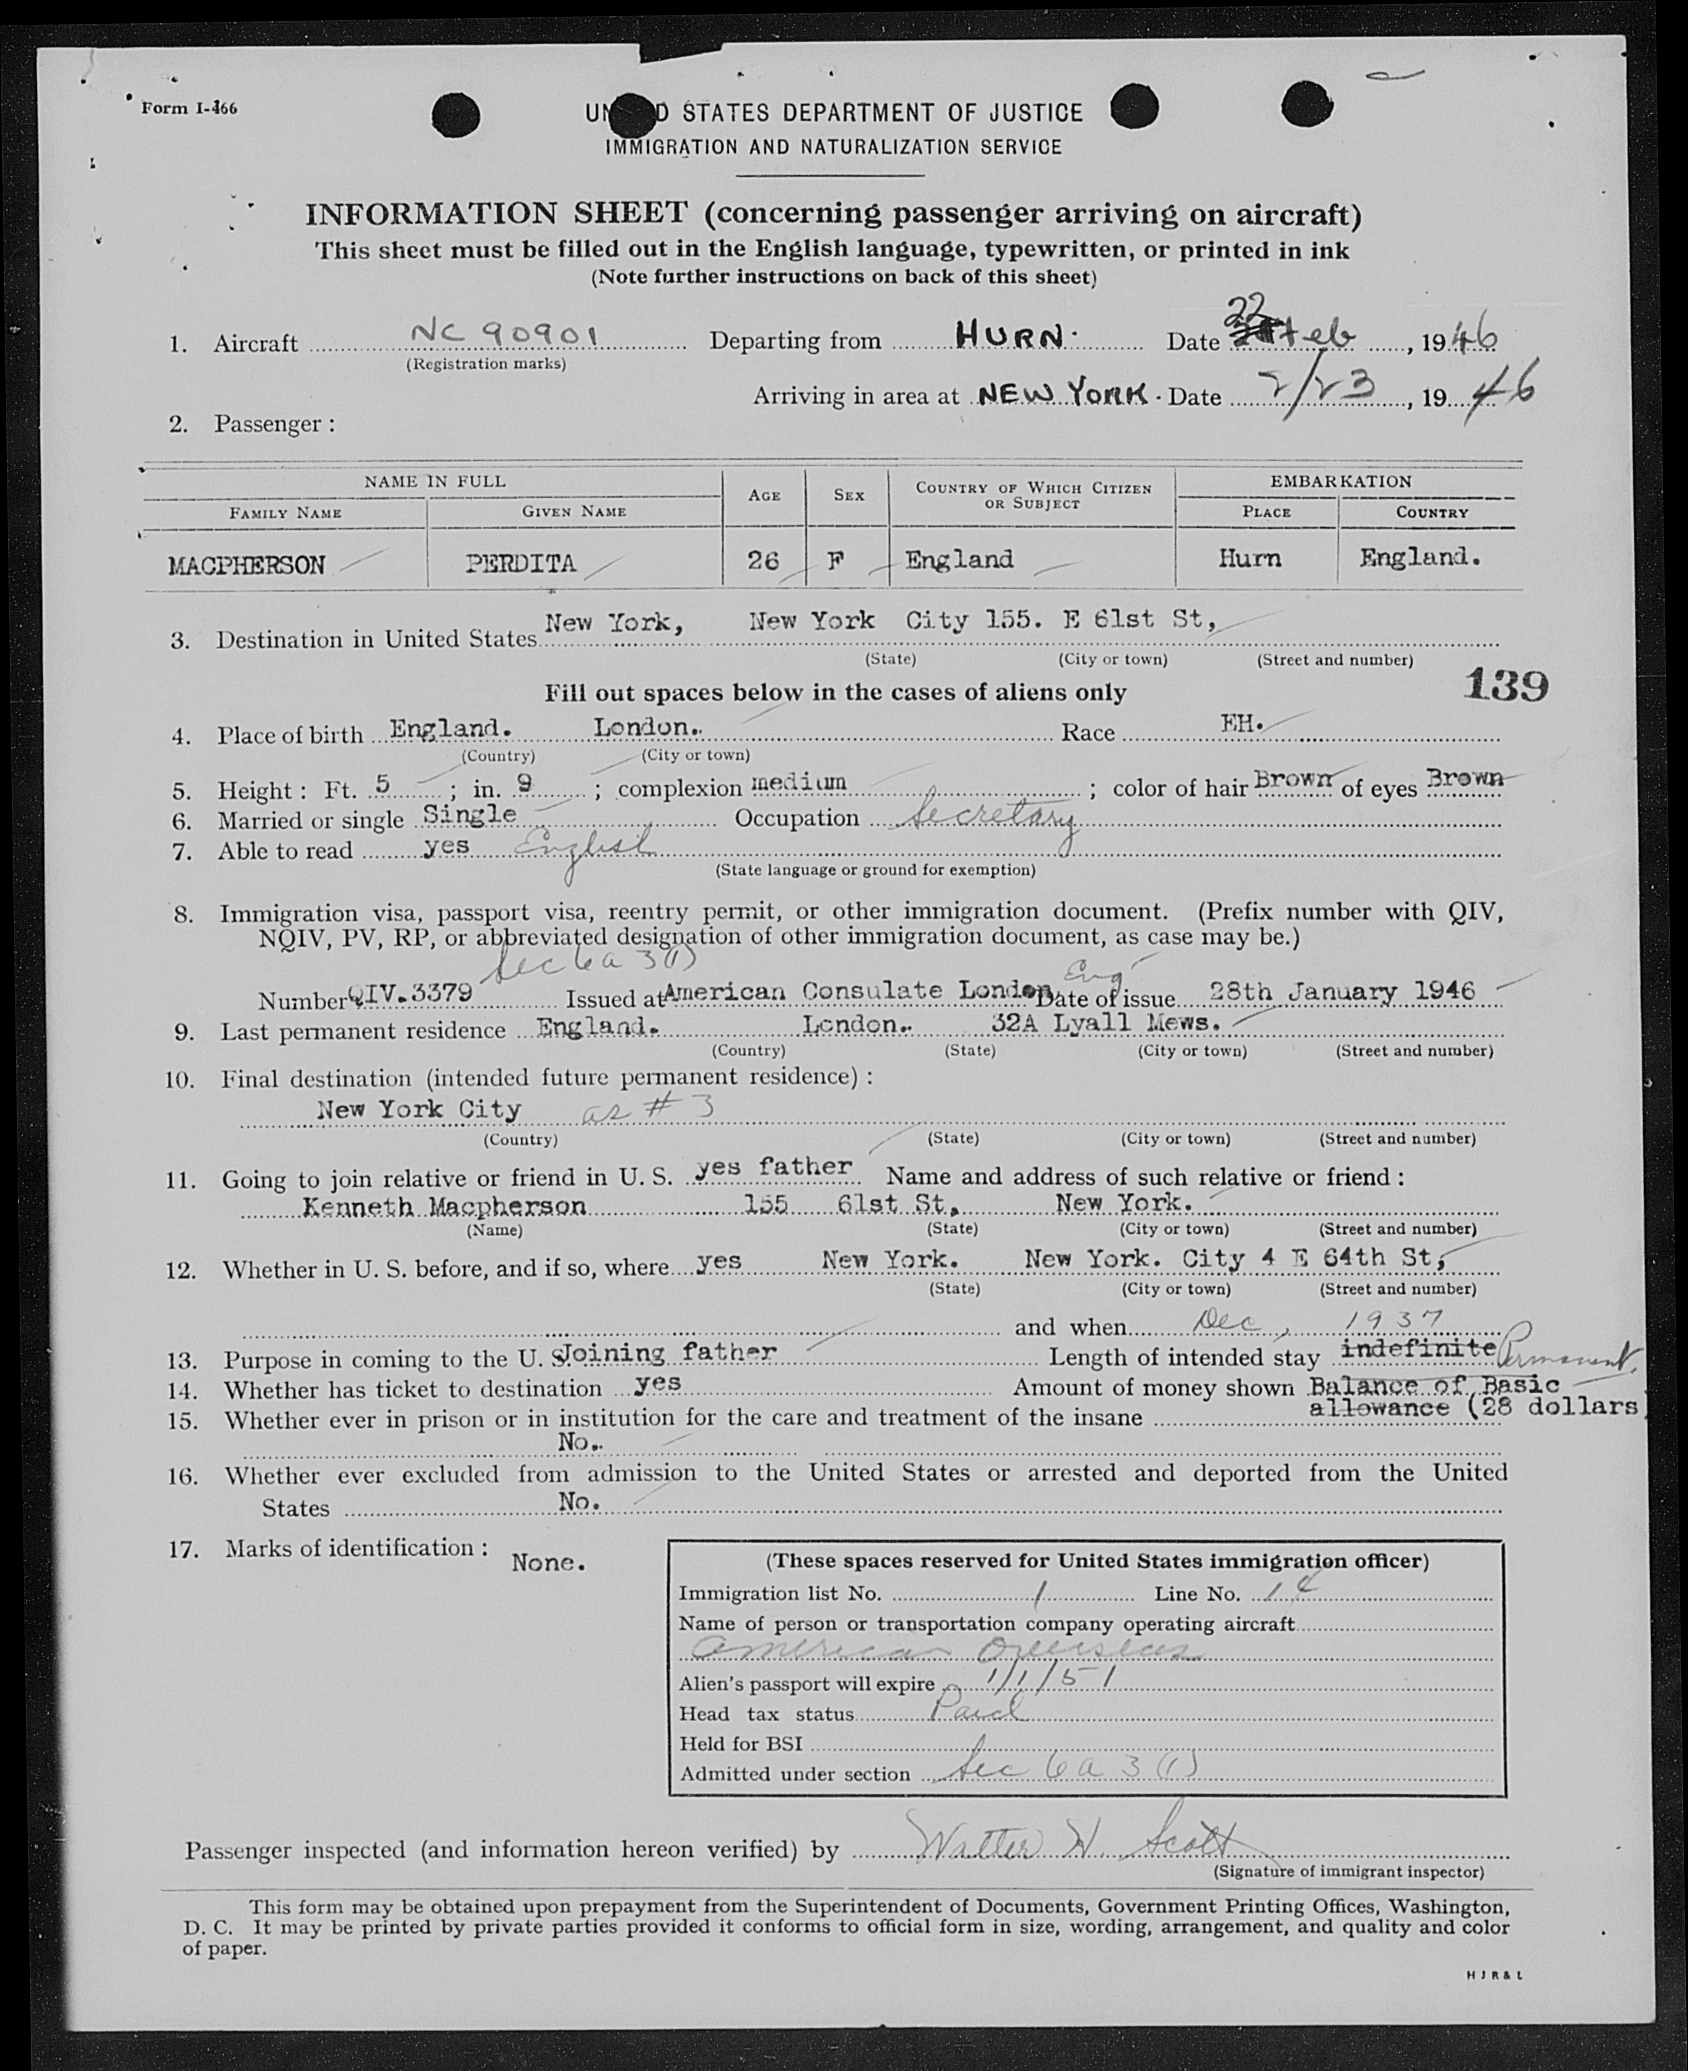 Form I-466
UNITED STATES DEPARTMENT OF JUSTICE
IMMIGRATION AND NATURALIZATION SERVICE
INFORMATION SHEET (concerning passenger arriving on aircraft)
This sheet must be filled out in the English language, typewritten, or printed in ink
(Note further instructions on back of this sheet)
1. Aircraft NC 90901 Departing from HURN. Date 22 Feb, 1946
(Registration marks)
Arriving in area at NEW YORK. Date 2/23, 1946
2. Passenger:
NAME IN FULL AGE SEX COUNTRY OF WHICH CITIZEN OR SUBJECT EMBARKATION
FAMILY NAME GIVEN NAME PLACE COUNTRY
MACPHERSON PERDITA 26 F England Hurn England.
3. Destination in United States New York, New York City 155. E 61st St,
(State) (City or town) (Street and number)
Fill out spaces below in the cases of aliens only 139
4. Place of birth England. London. Race EH.
(Country) (City or town)
5. Height: Ft. 5; in. 9; complexion medium; color of hair Brown of eyes Brown
6. Married or single Single Occupation Secretary
7. Able to read yes English
(State language or ground for exemption)
8. Immigration visa, passport visa, reentry permit, or other immigration document. (Prefix number with QIV,
NQIV, PV, RP, or abbreviated designation of other immigration document, as case may be.)
Sec 6a 3(1) Eng
Number QIV.3379 Issued at American Consulate London Date of issue 28th January 1946
9. Last permanent residence England. London. 32A Lyall Mews.
(Country) (State) (City or town) (Street and number)
10. Final destination (intended future permanent residence):
New York City as # 3
(Country) (State) (City or town) (Street and number)
11. Going to join relative or friend in U. S. yes father Name and address of such relative or friend:
Kenneth Macpherson 155 61st St, New York.
(Name) (State) (City or town) (Street and number)
12. Whether in U. S. before, and if so, where yes New York. New York. City 4 E 64th St,
(State) (City or town) (Street and number)
and when Dec, 1937
13. Purpose in coming to the U. S. Joining father Length of intended stay indefinite Permanent
14. Whether has ticket to destination yes Amount of money shown Balance of Basic
allowance (28 dollars)
15. Whether ever in prison or in institution for the care and treatment of the insane
No.
16. Whether ever excluded from admission to the United States or arrested and deported from the United
States No.
17. Marks of identification: None.
(These spaces reserved for United States immigration officer)
Immigration list No. 1 Line No. 14
Name of person or transportation company operating aircraft
American Overseas
Alien's passport will expire 1/1/51
Head tax status Paid
Held for BSI
Admitted under section Sec 6a 3(1)
Passenger inspected (and information hereon verified) by Walter H. Scott
(Signature of immigrant inspector)
This form may be obtained upon prepayment from the Superintendent of Documents, Government Printing Offices, Washington,
D. C. It may be printed by private parties provided it conforms to official form in size, wording, arrangement, and quality and color
of paper.
H J R & L